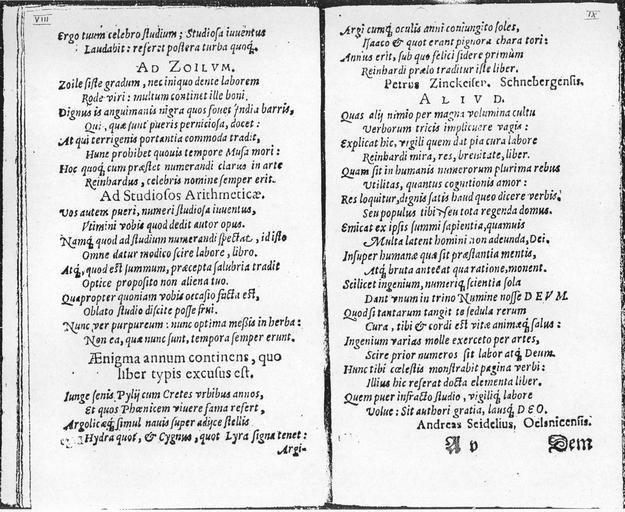 VIII
Ergo tuum celebro studium; Studiosa iuuentus
Laudabit: referet postera turba quoq́;.
AD ZOILVM.
Zoile siste gradum, nec iniquo dente laborem
Rode viri: multum continet ille boni.
Dignus is anguimanis nigra quos fouet India barris,
Qui, quæ sunt pueris perniciosa, docet:
At qui terrigenis portantia commoda tradit,
Hunc prohibet quouis tempore Musa mori:
Hoc quoq́; cum præstet numerandi clarus in arte
Reinhardus, celebris nomine semper erit.
Ad Studiosos Arithmeticæ.
Vos autem pueri, numeri studiosa iuuentus,
Vtimini vobis quod dedit autor opus.
Namq́; quod ad studium numerandi spectat, id isto
Omne datur modico scire labore, libro.
Atq́;, quod est summum, præcepta salubria tradit
Optice proposito non aliena tuo.
Quapropter quoniam vobis occasio facta est,
Oblato studio discite posse frui.
Nunc ver purpureum: nunc optima messis in herba:
Non ea, quæ nunc sunt, tempora semper erunt.
Ænigma annum continens, quo
liber typis excusus est.
Iunge senis Pylij cum Cretes vrbibus annos,
Et quos Phœnicem viuere fama refert,
Argolicæq́; simul nauis super adijce stellis
Hydra quot, & Cygnus, quot Lyra signa tenet:
Argi-
IX
Argi cumq́; oculis anni coniungito soles,
Isaaco & quot erant pignora chara tori:
Annus erit, sub quo felici sidere primùm
Reinhardi prælo traditur iste liber.
Petrus Zinckeiser. Schnebergensis.
ALIVD.
Quas alij nimio per magna volumina cultu
Verborum tricis implicuere vagis:
Explicat hic, vigili quem dat pia cura labore
Reinhardi mira, res, breuitate, liber.
Quam sit in humanis numerorum plurima rebus
Utilitas, quantus cognitionis amor:
Res loquitur, dignis satis haud queo dicere verbis.
Seu populus tibi, seu tota regenda domus.
Emicat ex ipsis summi sapientia, quamuis
Multa latent homini non adeunda, Dei.
Insuper humanæ quæ sit præstantia mentis,
Atq́; bruta anteeat qua ratione, monent.
Scilicet ingenium, numeriq́; scientia sola
Dant vnum in trino Numine nosse DEVM.
Quod si tantarum tangit te sedula rerum
Cura, tibi & cordi est vitæ animæq́; salus:
Ingenium varias molle exerceto per artes,
Scire prior numeros sit labor atq́; Deum.
Hunc tibi cælestis monstrabit pagina verbi:
Illius hic referat docta elementa liber.
Quem puer infracto studio, vigiliq́; labore
Volue: Sit authori gratia, lausq́; DEO.
Andreas Seidelius, Oelsnicensis.
A v
Dem